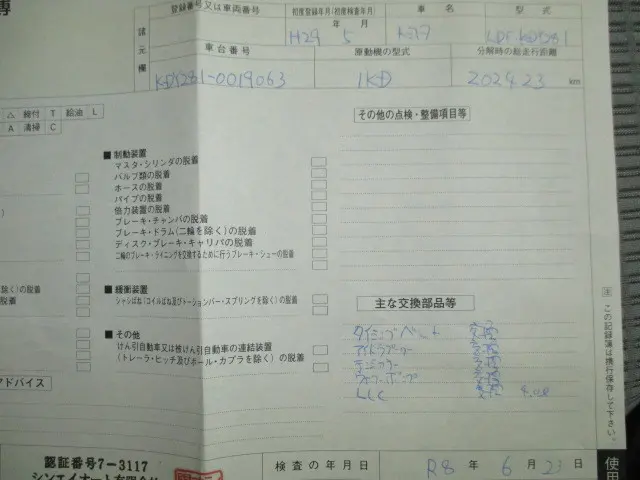 登録番号又は車両番号
初度登録年月/初度検査年月
車名
型式
諸元欄
H29 年 5 月
LDF-KDY281
車台番号
原動機の型式
分解時の総走行距離
KDY281-0019063
1KD
202923 km
△ 締付 T 給油 L
A 清掃 C
その他の点検・整備項目等
■ 制動装置
マスタ・シリンダの脱着
バルブ類の脱着
ホースの脱着
パイプの脱着
倍力装置の脱着
ブレーキ・チャンバの脱着
ブレーキ・ドラム(二輪を除く)の脱着
ディスク・ブレーキ・キャリパの脱着
二輪のブレーキ・ライニングを交換するために行うブレーキ・シューの脱着
■ 緩衝装置
シャシばね(コイルばね及びトーションバー・スプリングを除く)の脱着
■ その他
けん引自動車又は被けん引自動車の連結装置
(トレーラ・ヒッチ及びボール・カプラを除く)の脱着
主な交換部品等
タイミングベルト 交換
アイドラプーリー 交換
テンショナー 交換
ウォーターポンプ 交換
LLC 交換
アドバイス
注 この記録簿は携行保存して下さい。
認証番号7-3117
シンエイオート有限会社
検査の年月日
R8 年 6 月 23 日
使用